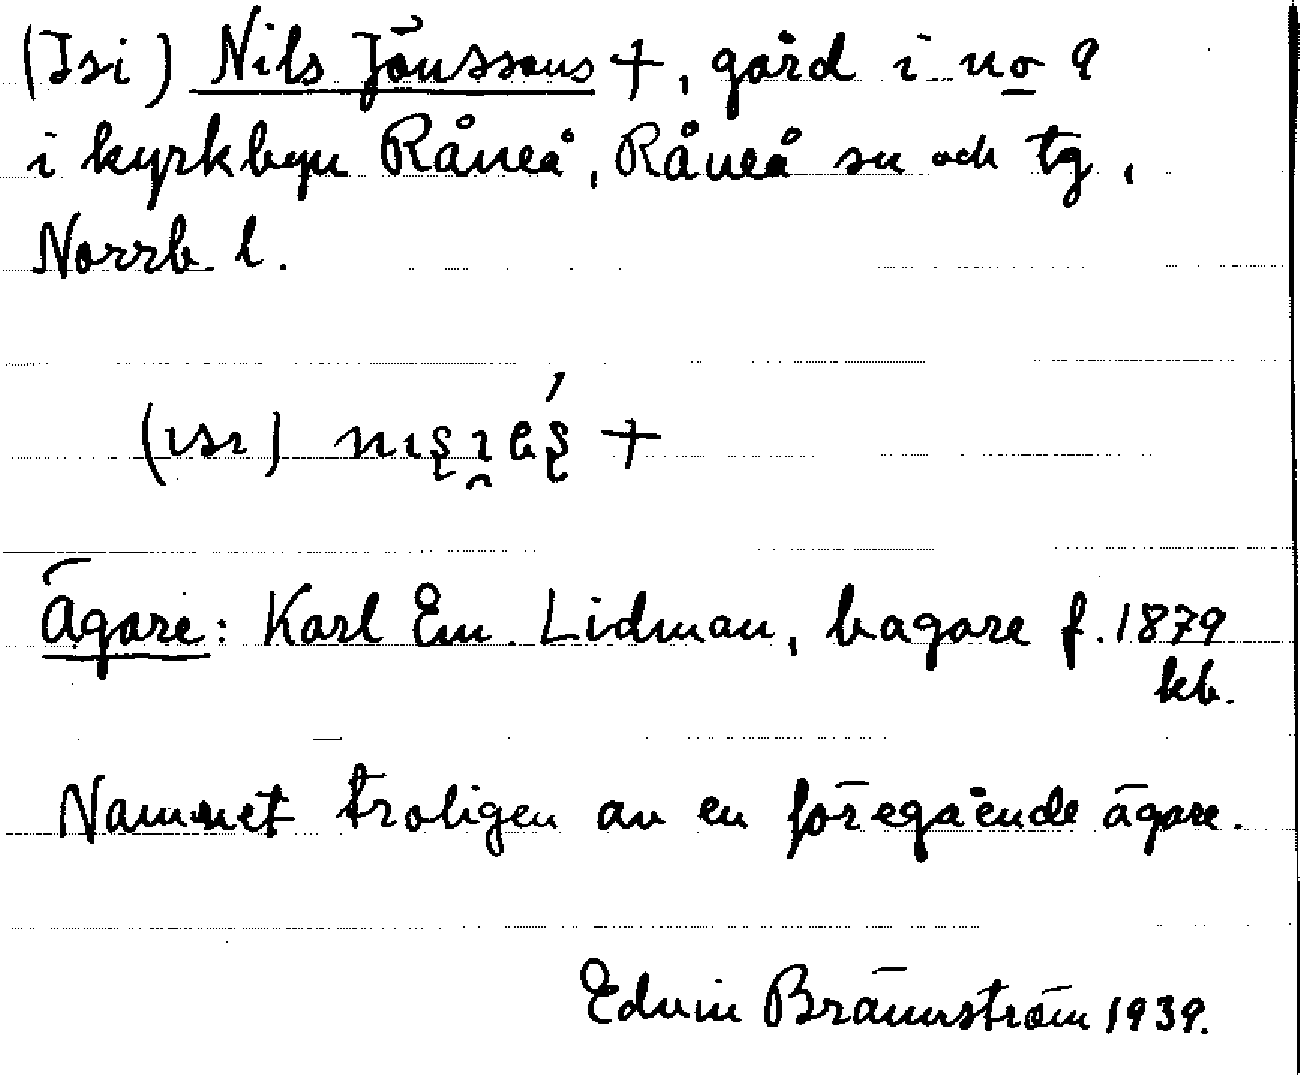 (Isi) Nils Jönssons +, gård i no 9
i kyrkbyn Råneå, Råneå sn och tg,
Norrb. l.
(ısı) +
Ägare: Karl Em. Lidman, bagare f. 1879
kb.
Namnet troligen av en föregående ägare.
Edvin Brännström 1939.